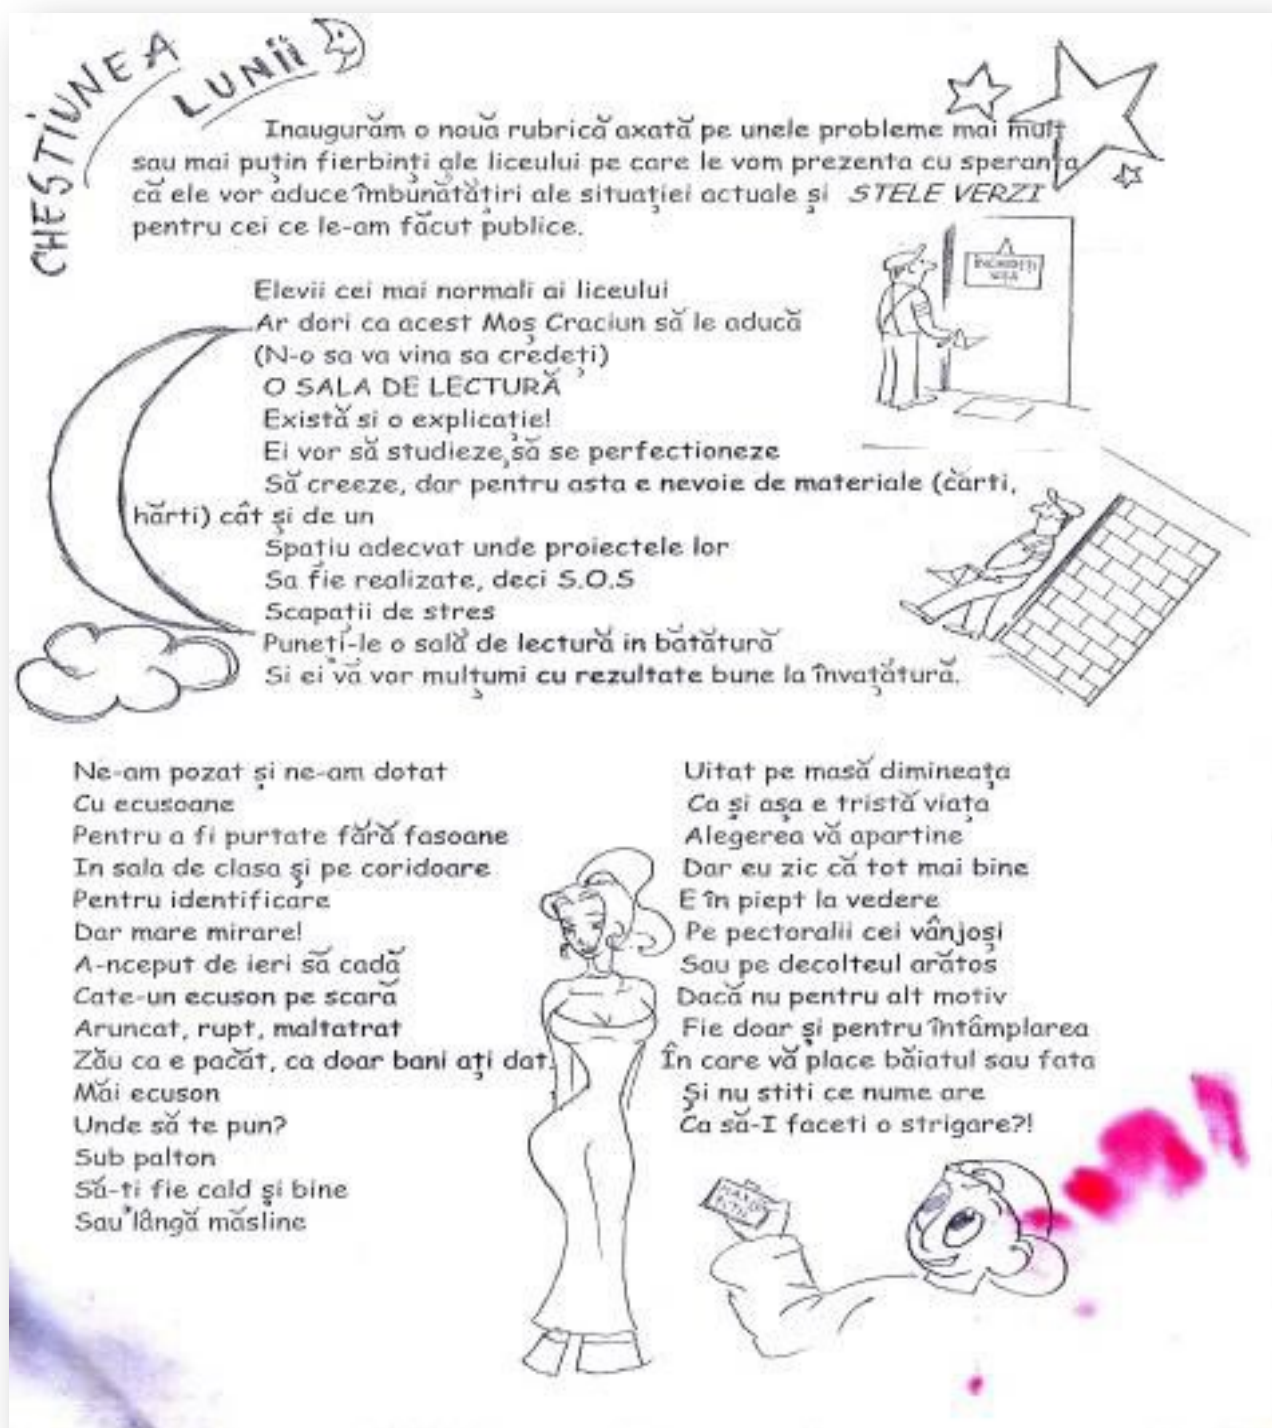 CHESTIUNEA
LUNII
Inaugurăm o nouă rubrică axată pe unele probleme mai mult
sau mai puțin fierbinți ale liceului pe care le vom prezenta cu speranța
că ele vor aduce îmbunătățiri ale situației actuale și STELE VERZI
pentru cei ce le-am făcut publice.
ÎNCHIDEȚI
UȘA
Elevii cei mai normali ai liceului
Ar dori ca acest Moș Craciun să le aducă
(N-o sa va vina sa credeți)
O SALA DE LECTURĂ
Există si o explicație!
Ei vor să studieze,să se perfectioneze
Să creeze, dar pentru asta e nevoie de materiale (cărti,
hărti) cât și de un
Spațiu adecvat unde proiectele lor
Sa fie realizate, deci S.O.S
Scapații de stres
Puneti-le o sală de lectură in bătătură
Si ei vă vor mulțumi cu rezultate bune la învațătură.
Ne-am pozat și ne-am dotat
Cu ecusoane
Pentru a fi purtate fără fasoane
In sala de clasa și pe coridoare
Pentru identificare
Dar mare mirare!
A-nceput de ieri să cadă
Cate-un ecuson pe scară
Aruncat, rupt, maltatrat
Zău ca e păcăt, ca doar bani ați dat.
Măi ecuson
Unde să te pun?
Sub palton
Să-ti fie cald și bine
Sau lângă măsline
Uitat pe masă dimineața
Ca și așa e tristă viața
Alegerea vă apartine
Dar eu zic că tot mai bine
E în piept la vedere
Pe pectoralii cei vânjoși
Sau pe decolteul arătos
Dacă nu pentru alt motiv
Fie doar și pentru întâmplarea
În care vă place băiatul sau fata
Și nu stiti ce nume are
Ca să-I faceti o strigare?!